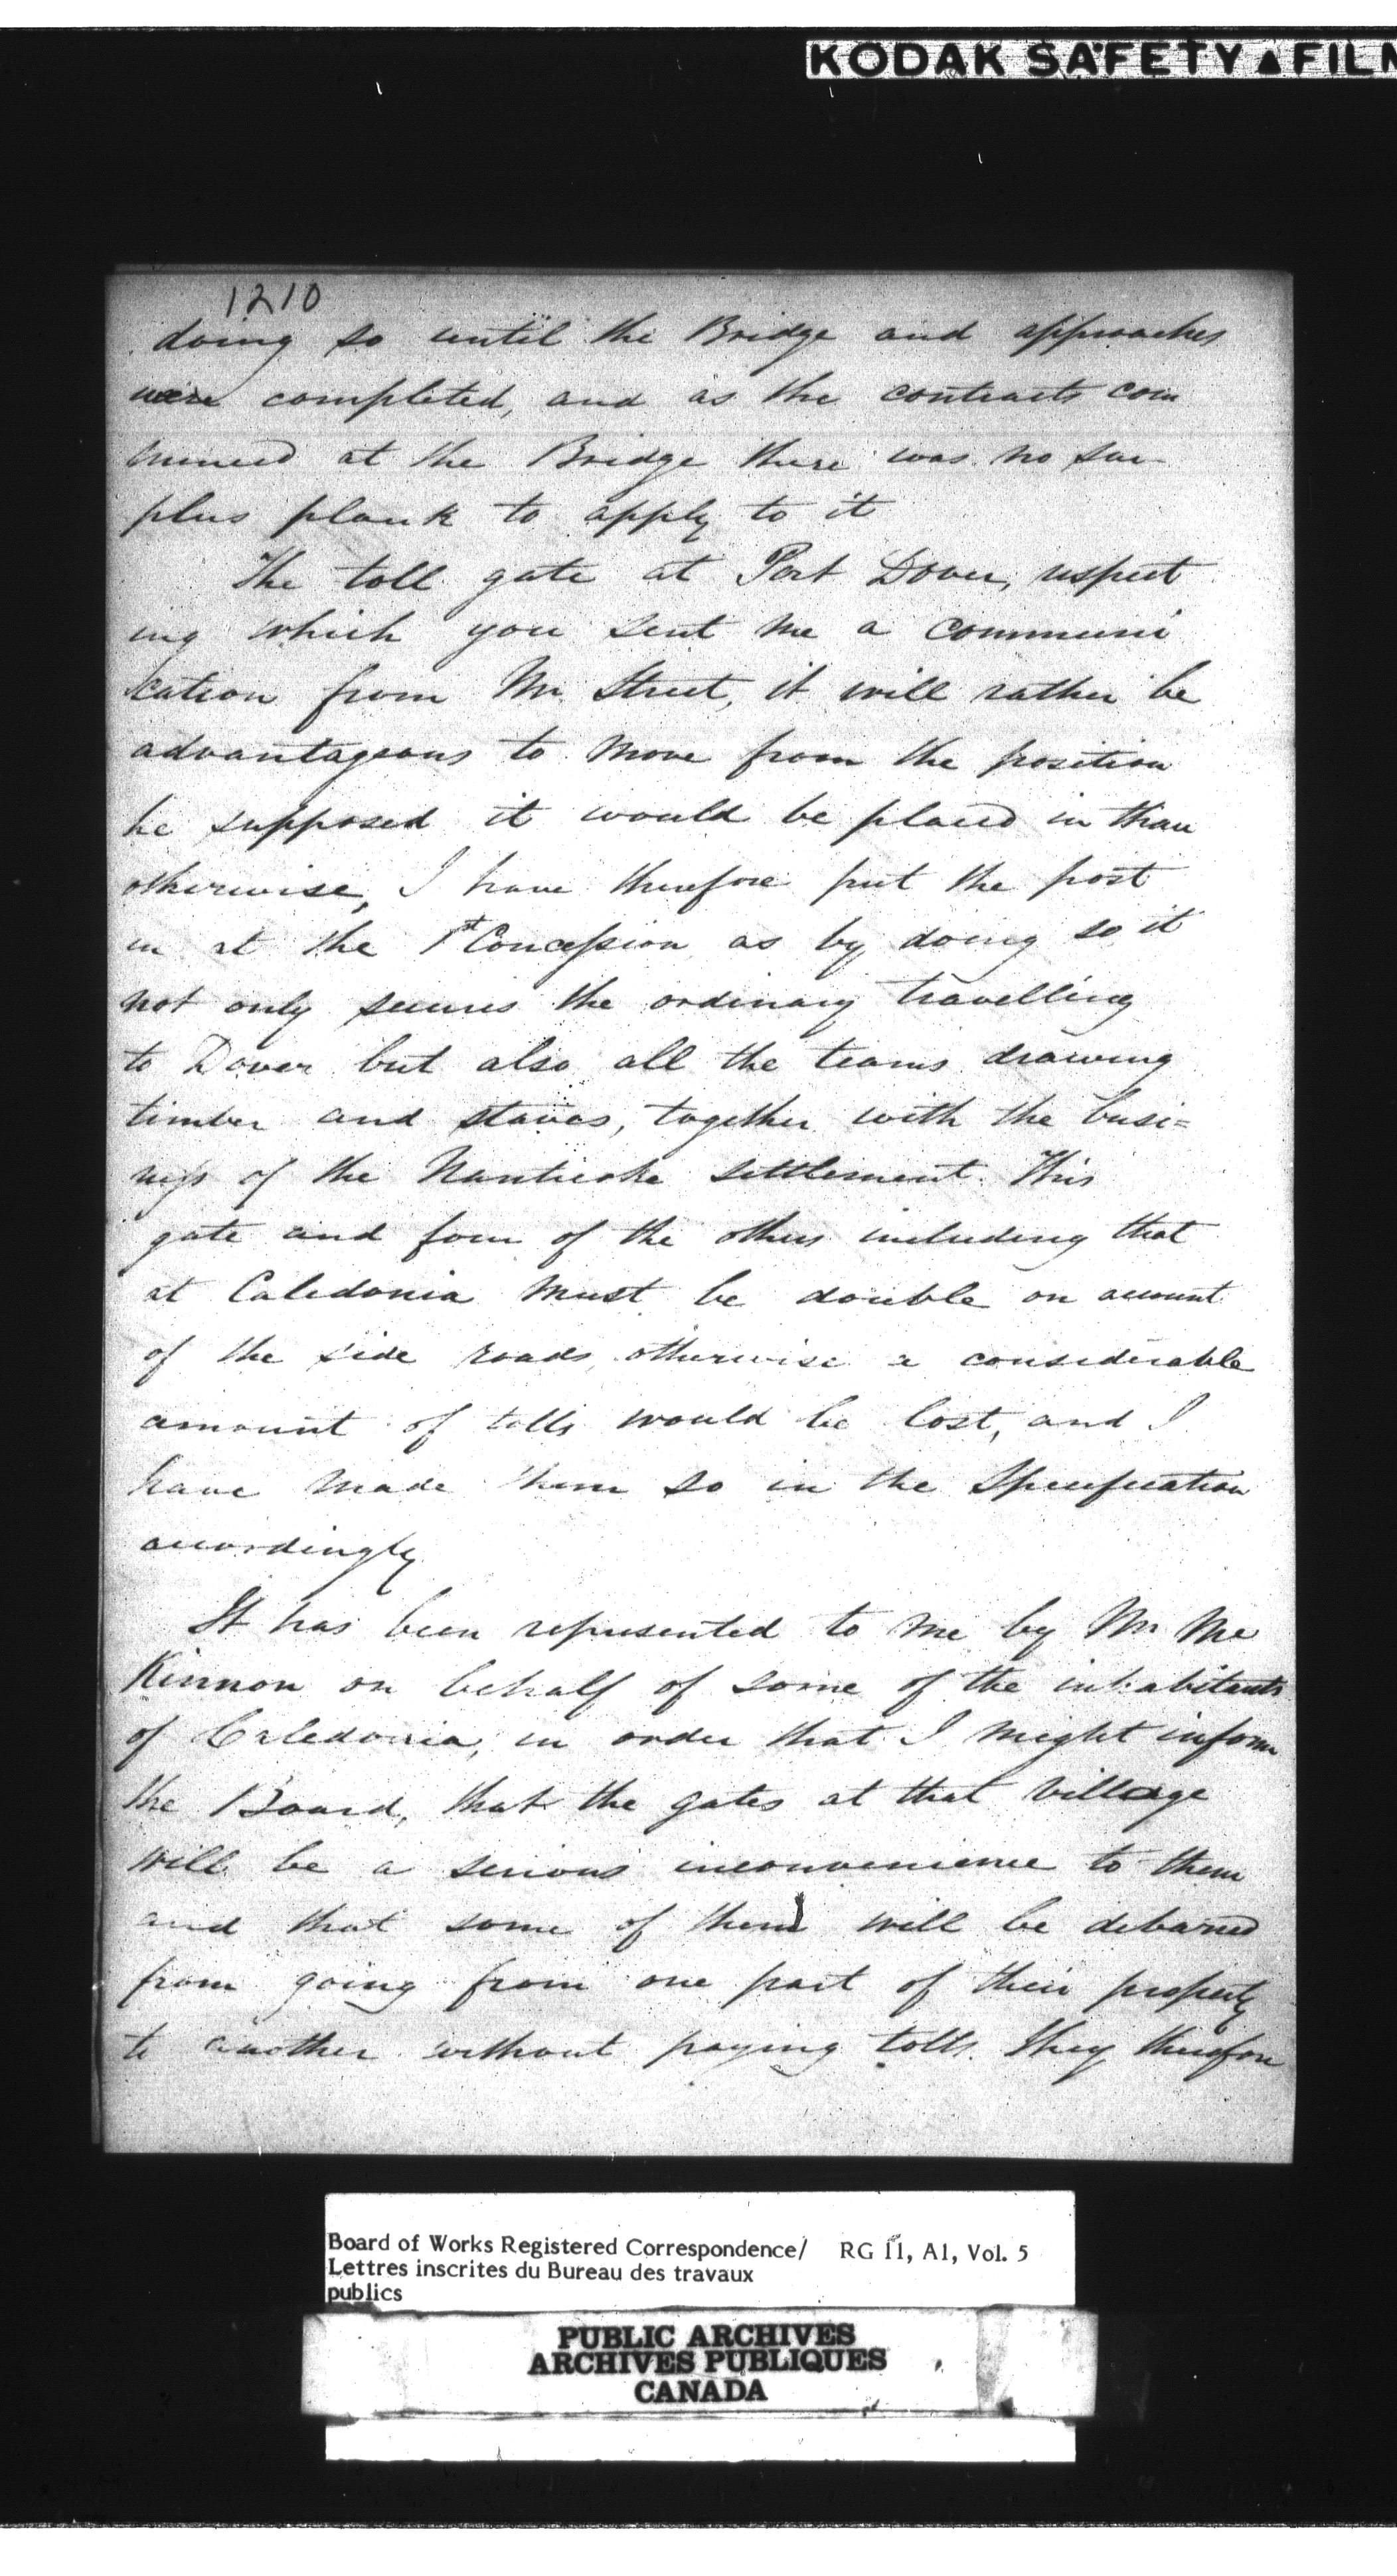 KODAK SAFETY ▲ FILM
1210
doing so until the Bridge and approaches
were completed, and as the contracts com
menced at the Bridge there was no sur
plus plank to apply to it
The toll gate at Port Dover, respect
ing which you sent me a communi
cation from Mr Street, it will rather be
advantageous to move from the position
he supposed it would be placed in than
otherwise, I have therefore put the post
in at the 1st Concession as by doing so it
not only secures the ordinary travelling
to Dover but also all the teams drawing
timber and staves, together with the busi=
ness of the Nanticoke settlement. This
gate and four of the others including that
at Caledonia must be double on account
of the side roads, otherwise a considerable
amount of tolls would be lost, and I
have made them so in the Specification
accordingly
It has been represented to me by Mr Mc
Kinnon on behalf of some of the inhabitants
of Caledonia, in order that I might inform
the Board, that the gates at that village
will be a serious inconvenience to them
and that some of them will be debarred
from going from one part of their property
to another without paying tolls. They therefore
Board of Works Registered Correspondence/ RG 11, A1, Vol. 5
Lettres inscrites du Bureau des travaux
publics
PUBLIC ARCHIVES
ARCHIVES PUBLIQUES
CANADA